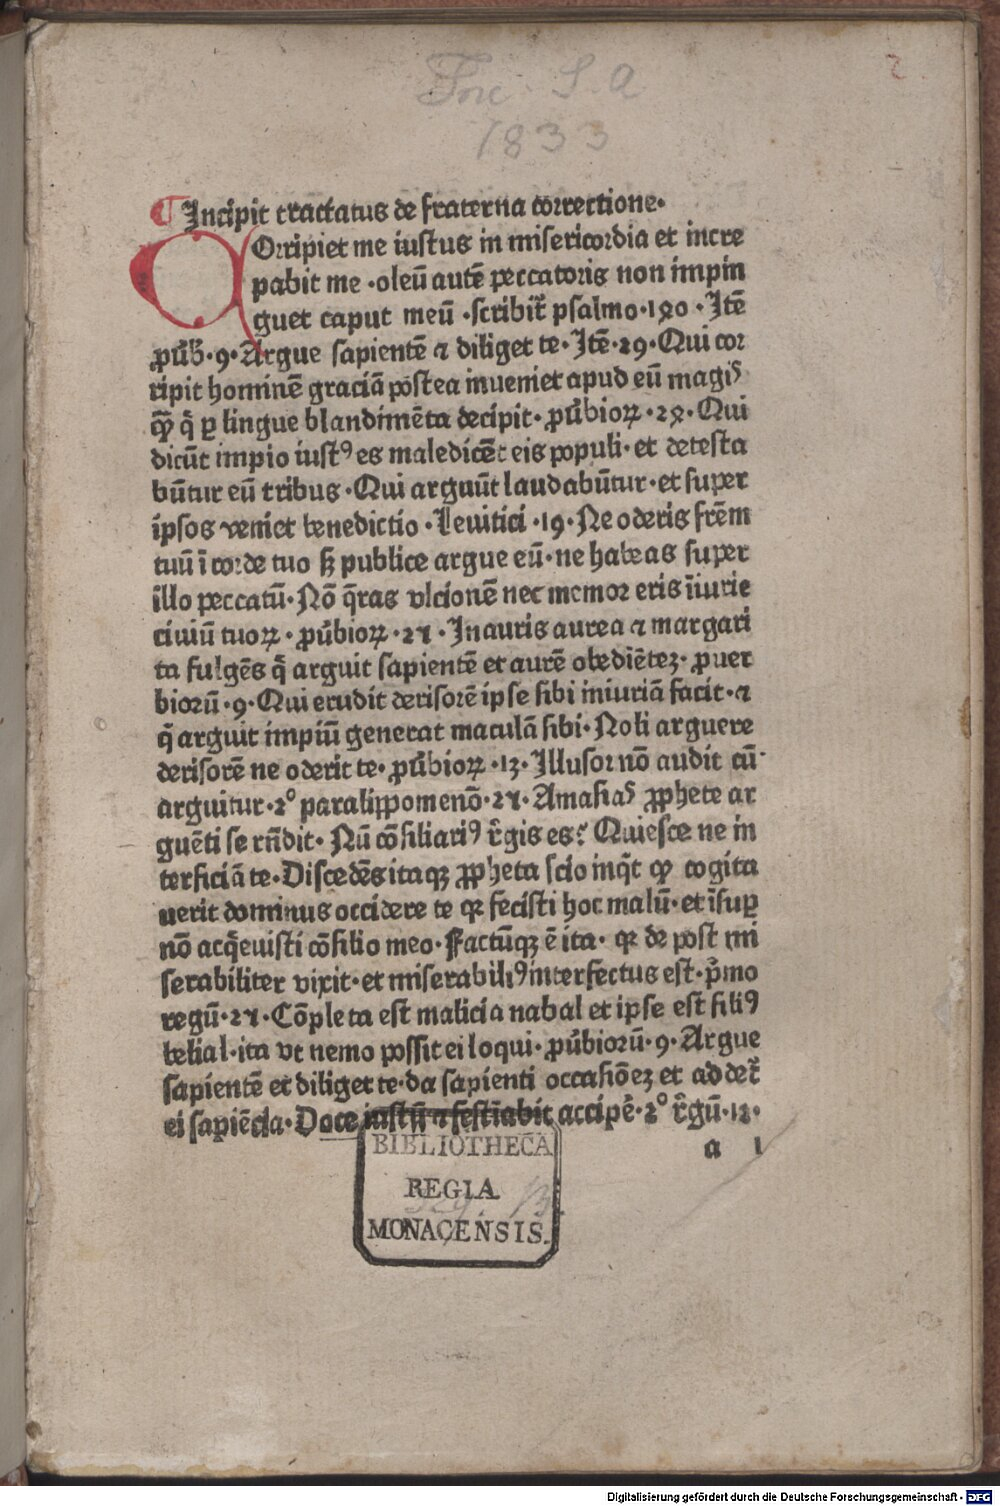 Inc. S. a
1833
2
¶ Incipit tractatus de fraterna correctione·
Orripiet me iustus in misericordia et incre
pabit me ·oleū autē peccatoris non impin
guet caput meū ·scribit᷑ psalmo·140 ·Itē
ꝓub̃·9·Argue sapientē ⁊ diliget te·Itē·29·Qui cor
ripit hominē graciā postea inueniet apud eū magiꝰ
qꝫ q̄ ꝑ lingue blandimēta decipit· ꝓūbioꝝ ·24·Qui
dicūt impio iustꝰ es maledicēt eis populi· et detesta
būtur eū tribus ·Qui arguūt laudabūtur·et super
ipsos veniet benedictio ·Leuitici ·19·Ne oderis frēm
tuū ī corde tuo sꝫ publice argue eū·ne habeas super
illo peccatū·Nō q̄ras vlcionē nec memor eris īiurie
ciuiū tuoꝝ · ꝓūbioꝝ ·25 ·Inauris aurea ⁊ margari
ta fulgēs q̄ arguit sapientē et aurē obediētez· ꝓuer
biorū·9·Qui erudit derisorē ipse sibi iniuriā facit·⁊
q̄ arguit impiū generat maculā sibi·Noli arguere
derisorē ne oderit te· ꝓūbioꝝ ·13·Illusor nō audit cū
arguitur·2º paralippomenō·25·Amasiaꝰ ꝓphete ar
guēti se rn̄dit· Nū cōsiliariꝰ r̄gis es? Quiesce ne in
terficiā te·Discedēs itaqꝫ ꝓpheta scio inq̄t ꝙ cogita
uerit dominus occidere te qꝛ fecisti hoc malū·et īsuꝑ
nō acq̄euisti cōsilio meo·Factūqꝫ ē ita· qꝛ de post mi
serabiliter vixit·et miserabiliꝰ interfectus est·p̄mo
regū·25·Cōpleta est malicia nabal et ipse est filiꝰ
belial·ita vt nemo possit ei loqui· ꝓūbiorū·9·Argue
sapientē et diliget te·da sapienti occasiōez et addet᷑
ei sapiēcia·Doce iustū ⁊ festīabit accipe᷑·2º r̄gū·12·
a 1
BIBLIOTHECA
REGIA
MONACENSIS.
Digitalisierung gefördert durch die Deutsche Forschungsgemeinschaft - DFG